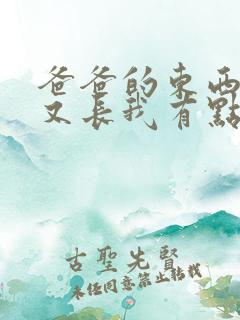 爸爸的東西
又長我有點
古聖先賢
未经同意禁止转载